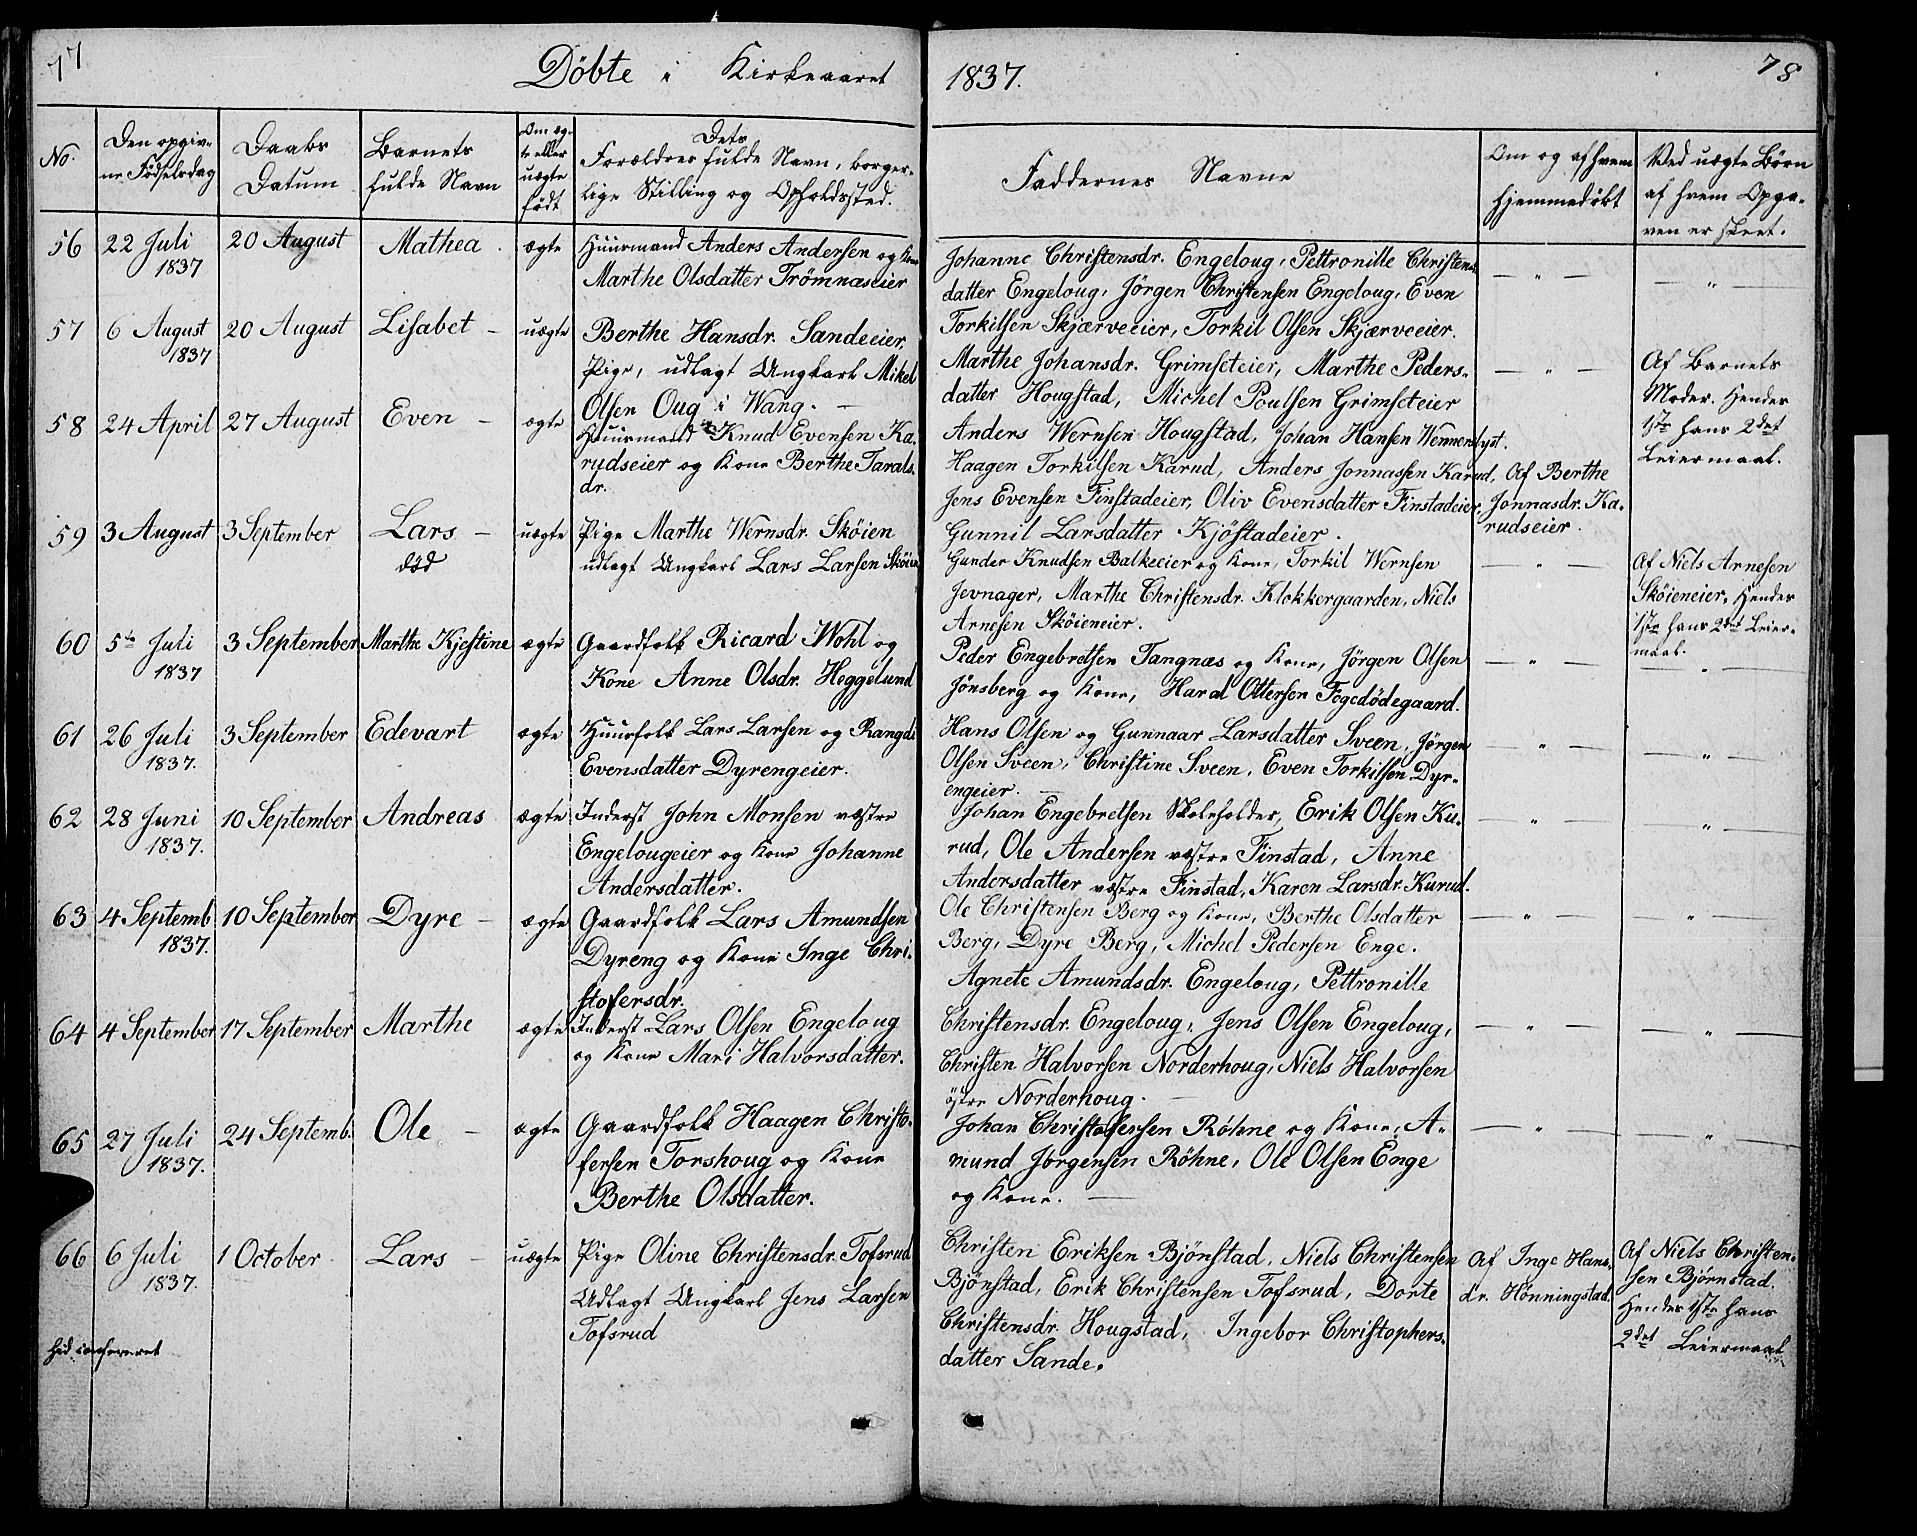 77
Döbte i Kirkeaaret
1837.
78
No.
Den opgiv-
ne Födselsdag
Daabs
Datum
Barnets
fulde Navn
Om æg-
te eller
uægte
födt
Dets
Forældres fulde Navn, borger-
lige Stilling og Opholdssted.
Faddernes Navne
Om og af hvem
hjemmedöbt
Ved uægte Börn
af hvem Opga-
ven er skeet.
56
22 Juli
1837
20 August
Mathea
ægte
Huusmand Anders Andersen og Kone
Marthe Olsdatter Trömnæseier
Johanne Christensdr. Engeloug, Pettronille Christens-
datter Engeloug, Jörgen Christensen Engeloug, Even
Torkilsen Skjærveeier, Torkil Olsen Skjærveeier.
— " —
— " —
57
6 August
1837
20 August
Lisabet –
uægte
Berthe Hansdr. Sandeeier,
Pige, udlagt Ungkarl Mikel
Olsen Oug i Wang. —
Marthe Johansdr. Grimseteier, Marthe Peders-
datter Hougstad, Michel Poulsen Grimseteier
Anders Wernsen Hougstad, Johan Hansen Wennerslyst.
— " —
Af Barnets
Moder. Hendes
1ste hans 2det
Leiermaal.
58
24 April
27 August
Even –
ægte
Huusmand Knud Evensen Ka-
rudseier og Kone Berthe Tarals-
dr.
Haagen Torkilsen Karud, Anders Jonnassen Karud,
Jens Evensen Finstadeier, Oliv Evensdatter Finstadeier,
Gunnil Larsdatter Kjöstadeier.
Af Berthe
Jonnasdr. Ka-
rudseier.
59
3 August
3 September
Lars –
död
uægte
Pige Marthe Wernsdr. Sköien
udlagt Ungkarl Lars Larsen Sköien
Gunder Knudsen Balkeeier og Kone, Torkil Wernsen
Jevnager, Marthe Christensdr. Klokkergaarden, Niels
Arnesen Sköieneier.
— " —
Af Niels Arnesen
Sköieneier, Hendes
1ste hans 2det Leier-
maal.
60
5te Juli
1837
3 September
Marthe Kjestine
ægte
Gaardfolk Ricard Wohl og
Kone Anne Olsdr. Heggelund
Peder Engebretsen Tangnæs og Kone, Jörgen Olsen
Jönsberg og Kone, Haral Ottersen Fogedödegaard.
— " —
— " —
61
26 Juli
1837.
3 September
Edevart
ægte
Huusfolk Lars Larsen og Rangdi
Evensdatter Dyrengeier.
Hans Olsen og Gunnaar Larsdatter Sveen, Jörgen
Olsen Sveen, Christine Sveen, Even Torkilsen Dyr-
engeier. —
— " —
— " —
62
28 Juni
1837.
10 September
Andreas
ægte
Inderst John Monsen vestre
Engelougeier og Kone Johanne
Andersdatter.
Johan Engebretsen Skoleholder, Erik Olsen Ku-
rud, Ole Andersen vestre Finstad, Anne
Andersdatter vestre Finstad, Karen Larsdr. Kurud.
— " —
— " —
63
4 Septemb.
1837.
10 September
Dyre –
ægte
Gaardfolk Lars Amundsen
Dyreng og Kone Inge Chri-
stofersdr.
Ole Christensen Berg og Kone, Berthe Olsdatter
Berg, Dyre Berg, Michel Pedersen Enge.
— " —
— " —
64
4 September
17 September
Marthe
ægte
Inderst Lars Olsen Engeloug
og Kone Mari Halvorsdatter.
Agnete Amundsdr. Engeloug, Pettronille
Christensdr. Engeloug, Jens Olsen Engeloug,
Christen Halvorsen Norderhoug, Niels Halvorsen
östre Norderhoug. —
— " —
— " —
65
27 Juli
1837.
24 Septemb.
Ole –
ægte
Gaardfolk Haagen Christo-
fersen Torshoug og Kone
Berthe Olsdatter.
Johan Christofersen Röhne og Kone, A-
mund Jörgensen Röhne, Ole Olsen Enge
og Kone. —
— " —
— " —
66
6 Juli
1837.
1 October
Lars –
uægte
Pige Oline Christensdr. Tofsrud
Udlagt Ungkarl Jens Larsen
Tofsrud
Christen Eriksen Bjönstad, Niels Christensen
Bjönstad, Erik Christensen Tofsrud, Dorte
Christensdr. Hougstad, Ingebor Christophers-
datter Sande.
Af Inge Hans-
dr. Hönningstad.
Af Niels Christen-
sen Björnstad.
Hendes 1ste hans
2det Leiermaal
hid confereret